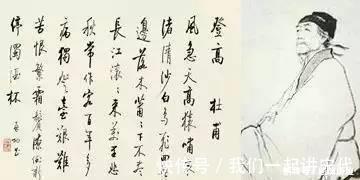 登高 杜甫
風急天高猿嘯哀
渚清沙白鳥飛回無
邊落木蕭蕭下不盡
長江滾滾來萬里悲
秋常作客百年多
病獨登臺艱難
苦恨繁霜鬢潦倒新
停濁酒杯
快传号/我们一起讲